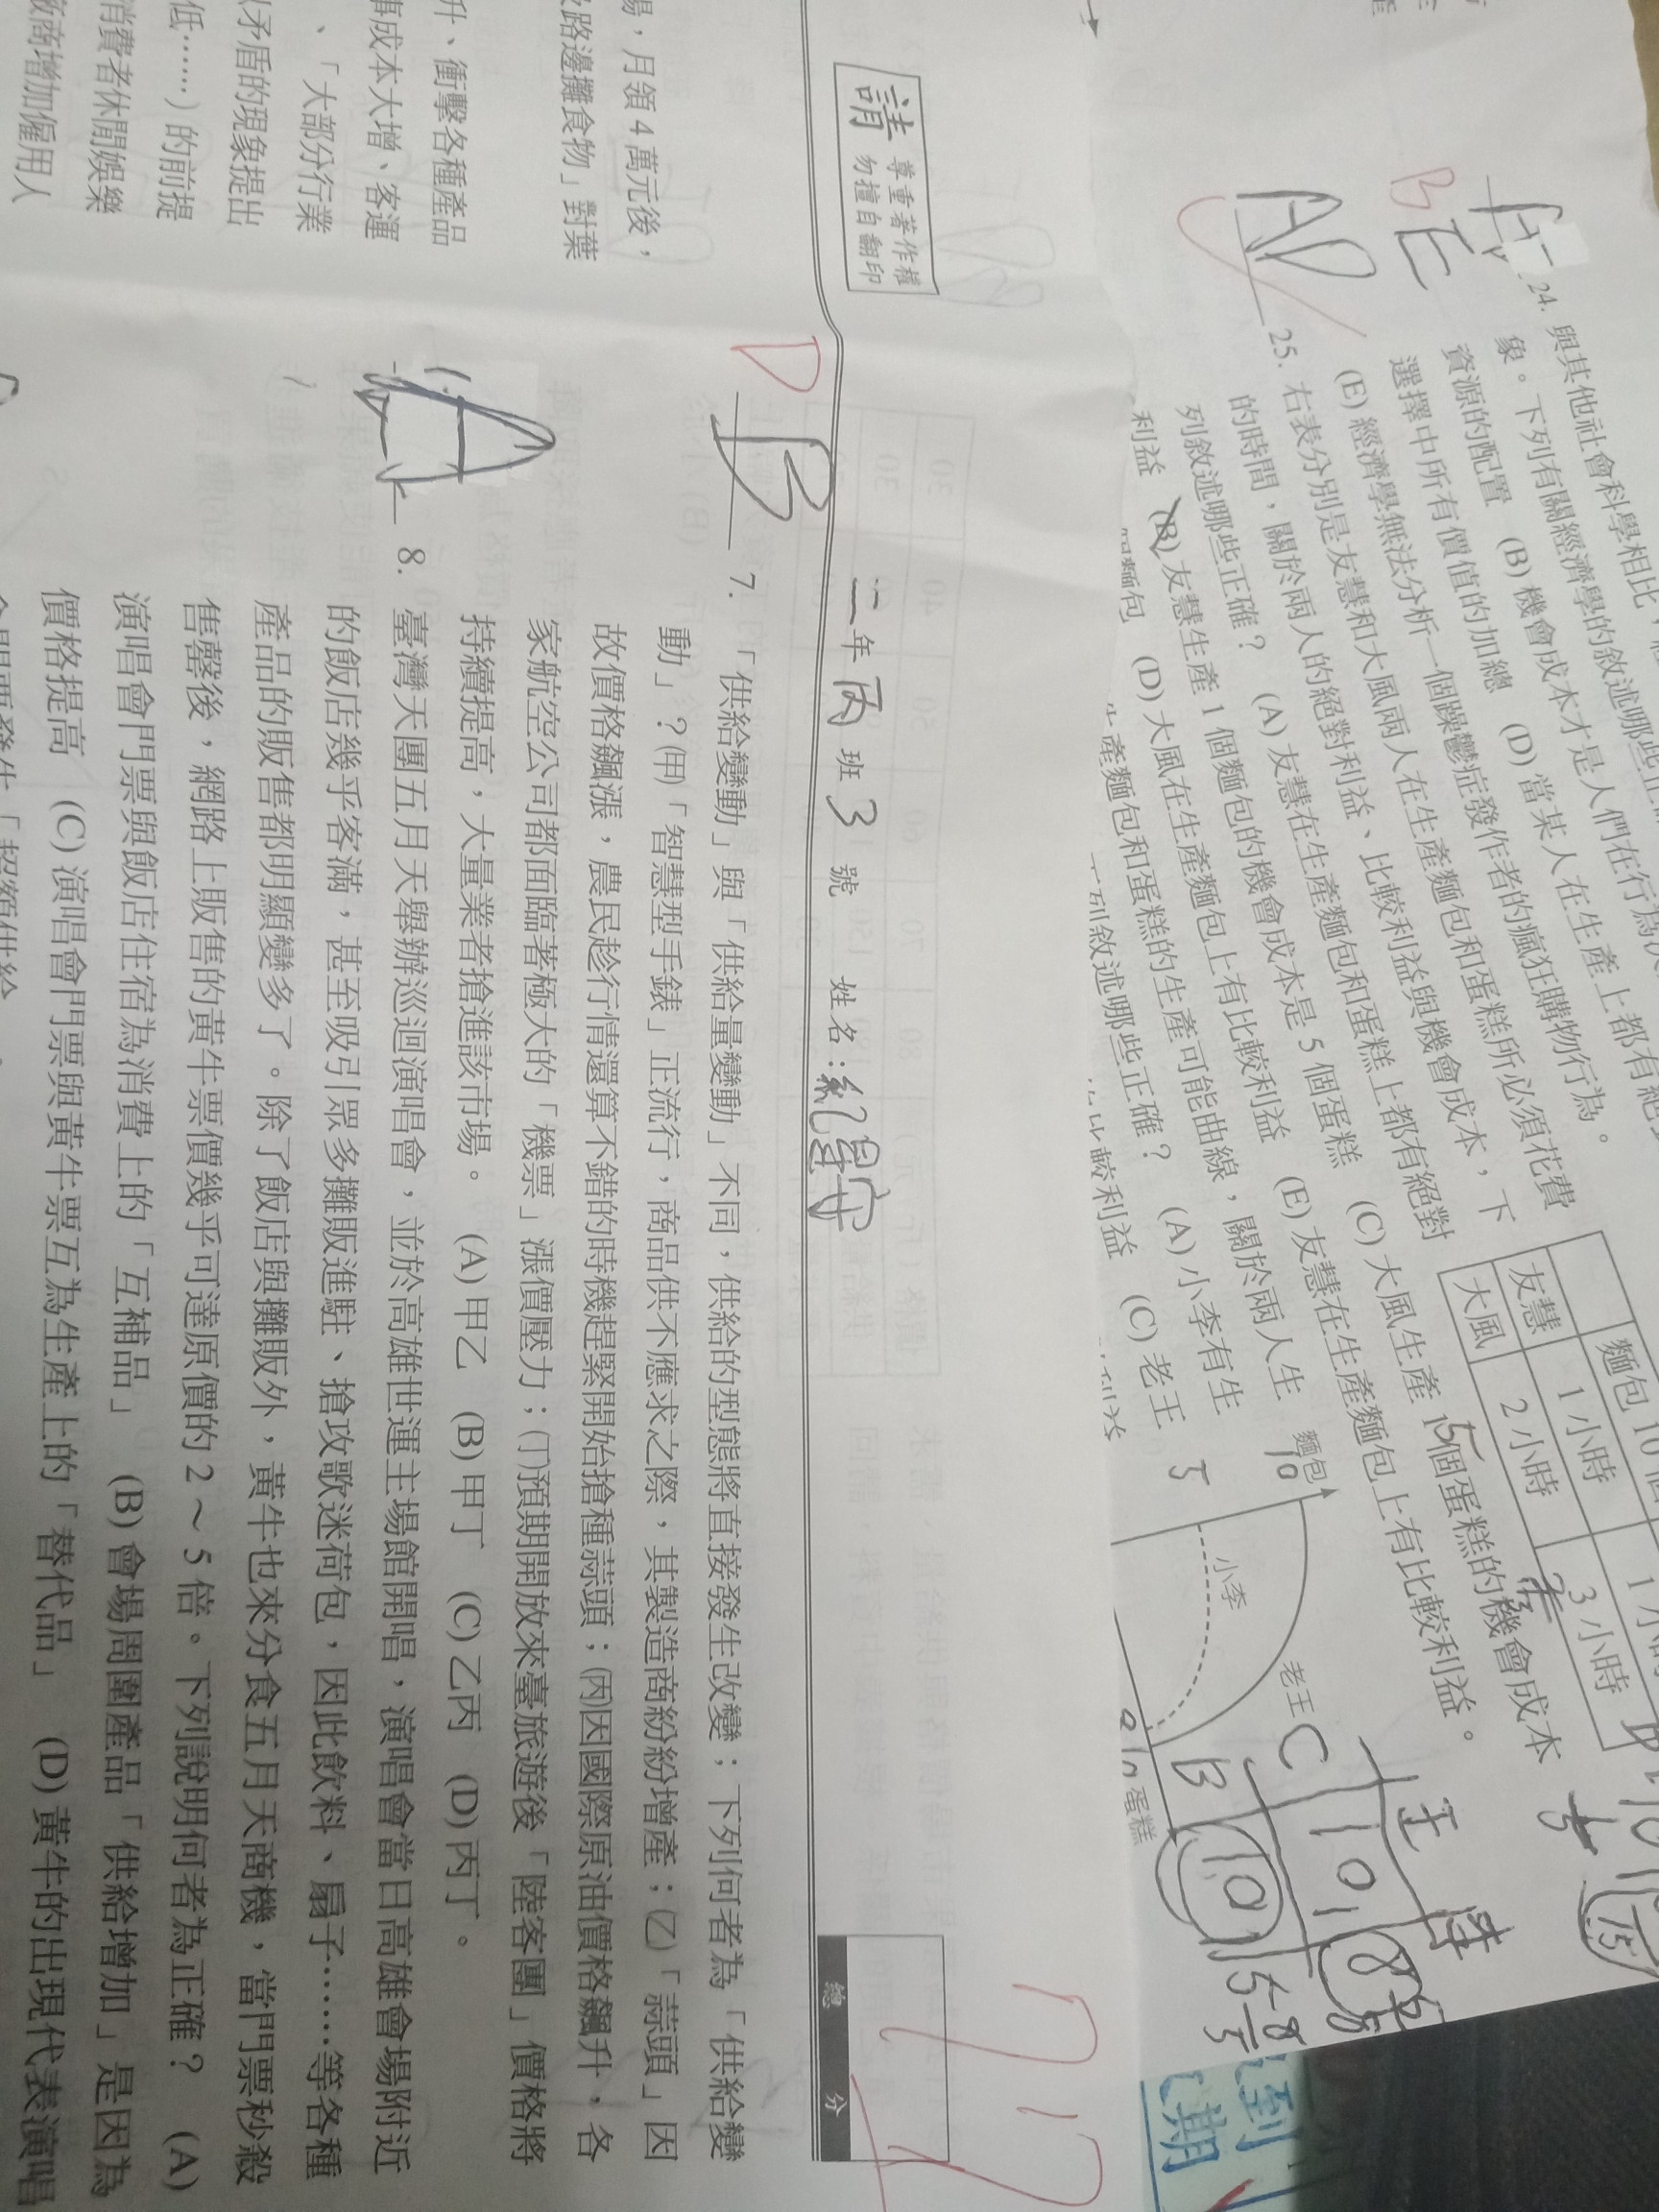 24. 與其他社會科學相比，
象。下列有關經濟學的敘述哪些正確
資源的配置 (B) 機會成本才是人們在行為決
選擇中所有價值的加總 (D) 當某人在生產上都有絕
(E) 經濟學無法分析一個躁鬱症發作者的瘋狂購物行為。
BE
AD
25. 右表分別是友慧和大風兩人在生產麵包和蛋糕所必須花費
的時間，關於兩人的絕對利益、比較利益與機會成本，下
列敘述哪些正確？ (A) 友慧在生產麵包和蛋糕上都有絕對
利益 (B) 友慧生產 1 個麵包的機會成本是 5 個蛋糕 (C) 大風生產 15個蛋糕的機會成本
個麵包 (D) 大風在生產麵包上有比較利益 (E) 友慧在生產麵包上有比較利益。
麵包 10 個
友慧 1 小時 1 小時
大風 2 小時 3 小時
生產麵包和蛋糕的生產可能曲線，關於兩人生
下列敘述哪些正確？ (A) 小李有生
比較利益 (C) 老王
麵包
10
5
小李
老王
蛋糕
王 李
C 10 8
B 10 5
請 尊重著作權
勿擅自翻印
二年丙班3號 姓名：
總分
D
B
7. 「供給變動」與「供給量變動」不同，供給的型態將直接發生改變；下列何者為「供給變
動」？(甲)「智慧型手錶」正流行，商品供不應求之際，其製造商紛紛增產；(乙)「蒜頭」因
故價格飆漲，農民趁行情還算不錯的時機趕緊開始搶種蒜頭；(丙)因國際原油價格飆升，各
家航空公司都面臨著極大的「機票」漲價壓力；(丁)預期開放來臺旅遊後「陸客團」價格將
持續提高，大量業者搶進該市場。 (A) 甲乙 (B) 甲丁 (C) 乙丙 (D) 丙丁。
A
8. 臺灣天團五月天舉辦巡迴演唱會，並於高雄世運主場館開唱，演唱會當日高雄會場附近
的飯店幾乎客滿，甚至吸引眾多攤販進駐、搶攻歌迷荷包，因此飲料、扇子……等各種
產品的販售都明顯變多了。除了飯店與攤販外，黃牛也來分食五月天商機，當門票秒殺
售罄後，網路上販售的黃牛票價幾乎可達原價的 2～5 倍。下列說明何者為正確？ (A)
演唱會門票與飯店住宿為消費上的「互補品」 (B) 會場周圍產品「供給增加」是因為
價格提高 (C) 演唱會門票與黃牛票互為生產上的「替代品」 (D) 黃牛的出現代表演唱
會門票發生「超額供給
場，月領 4 萬元後，
路邊攤食物」對葉
升、衝擊各種產品
事成本大增、客運
、「大部分行業
矛盾的現象提出
低……）的前提
消費者休閒娛樂
廠商增加僱用人
到
期